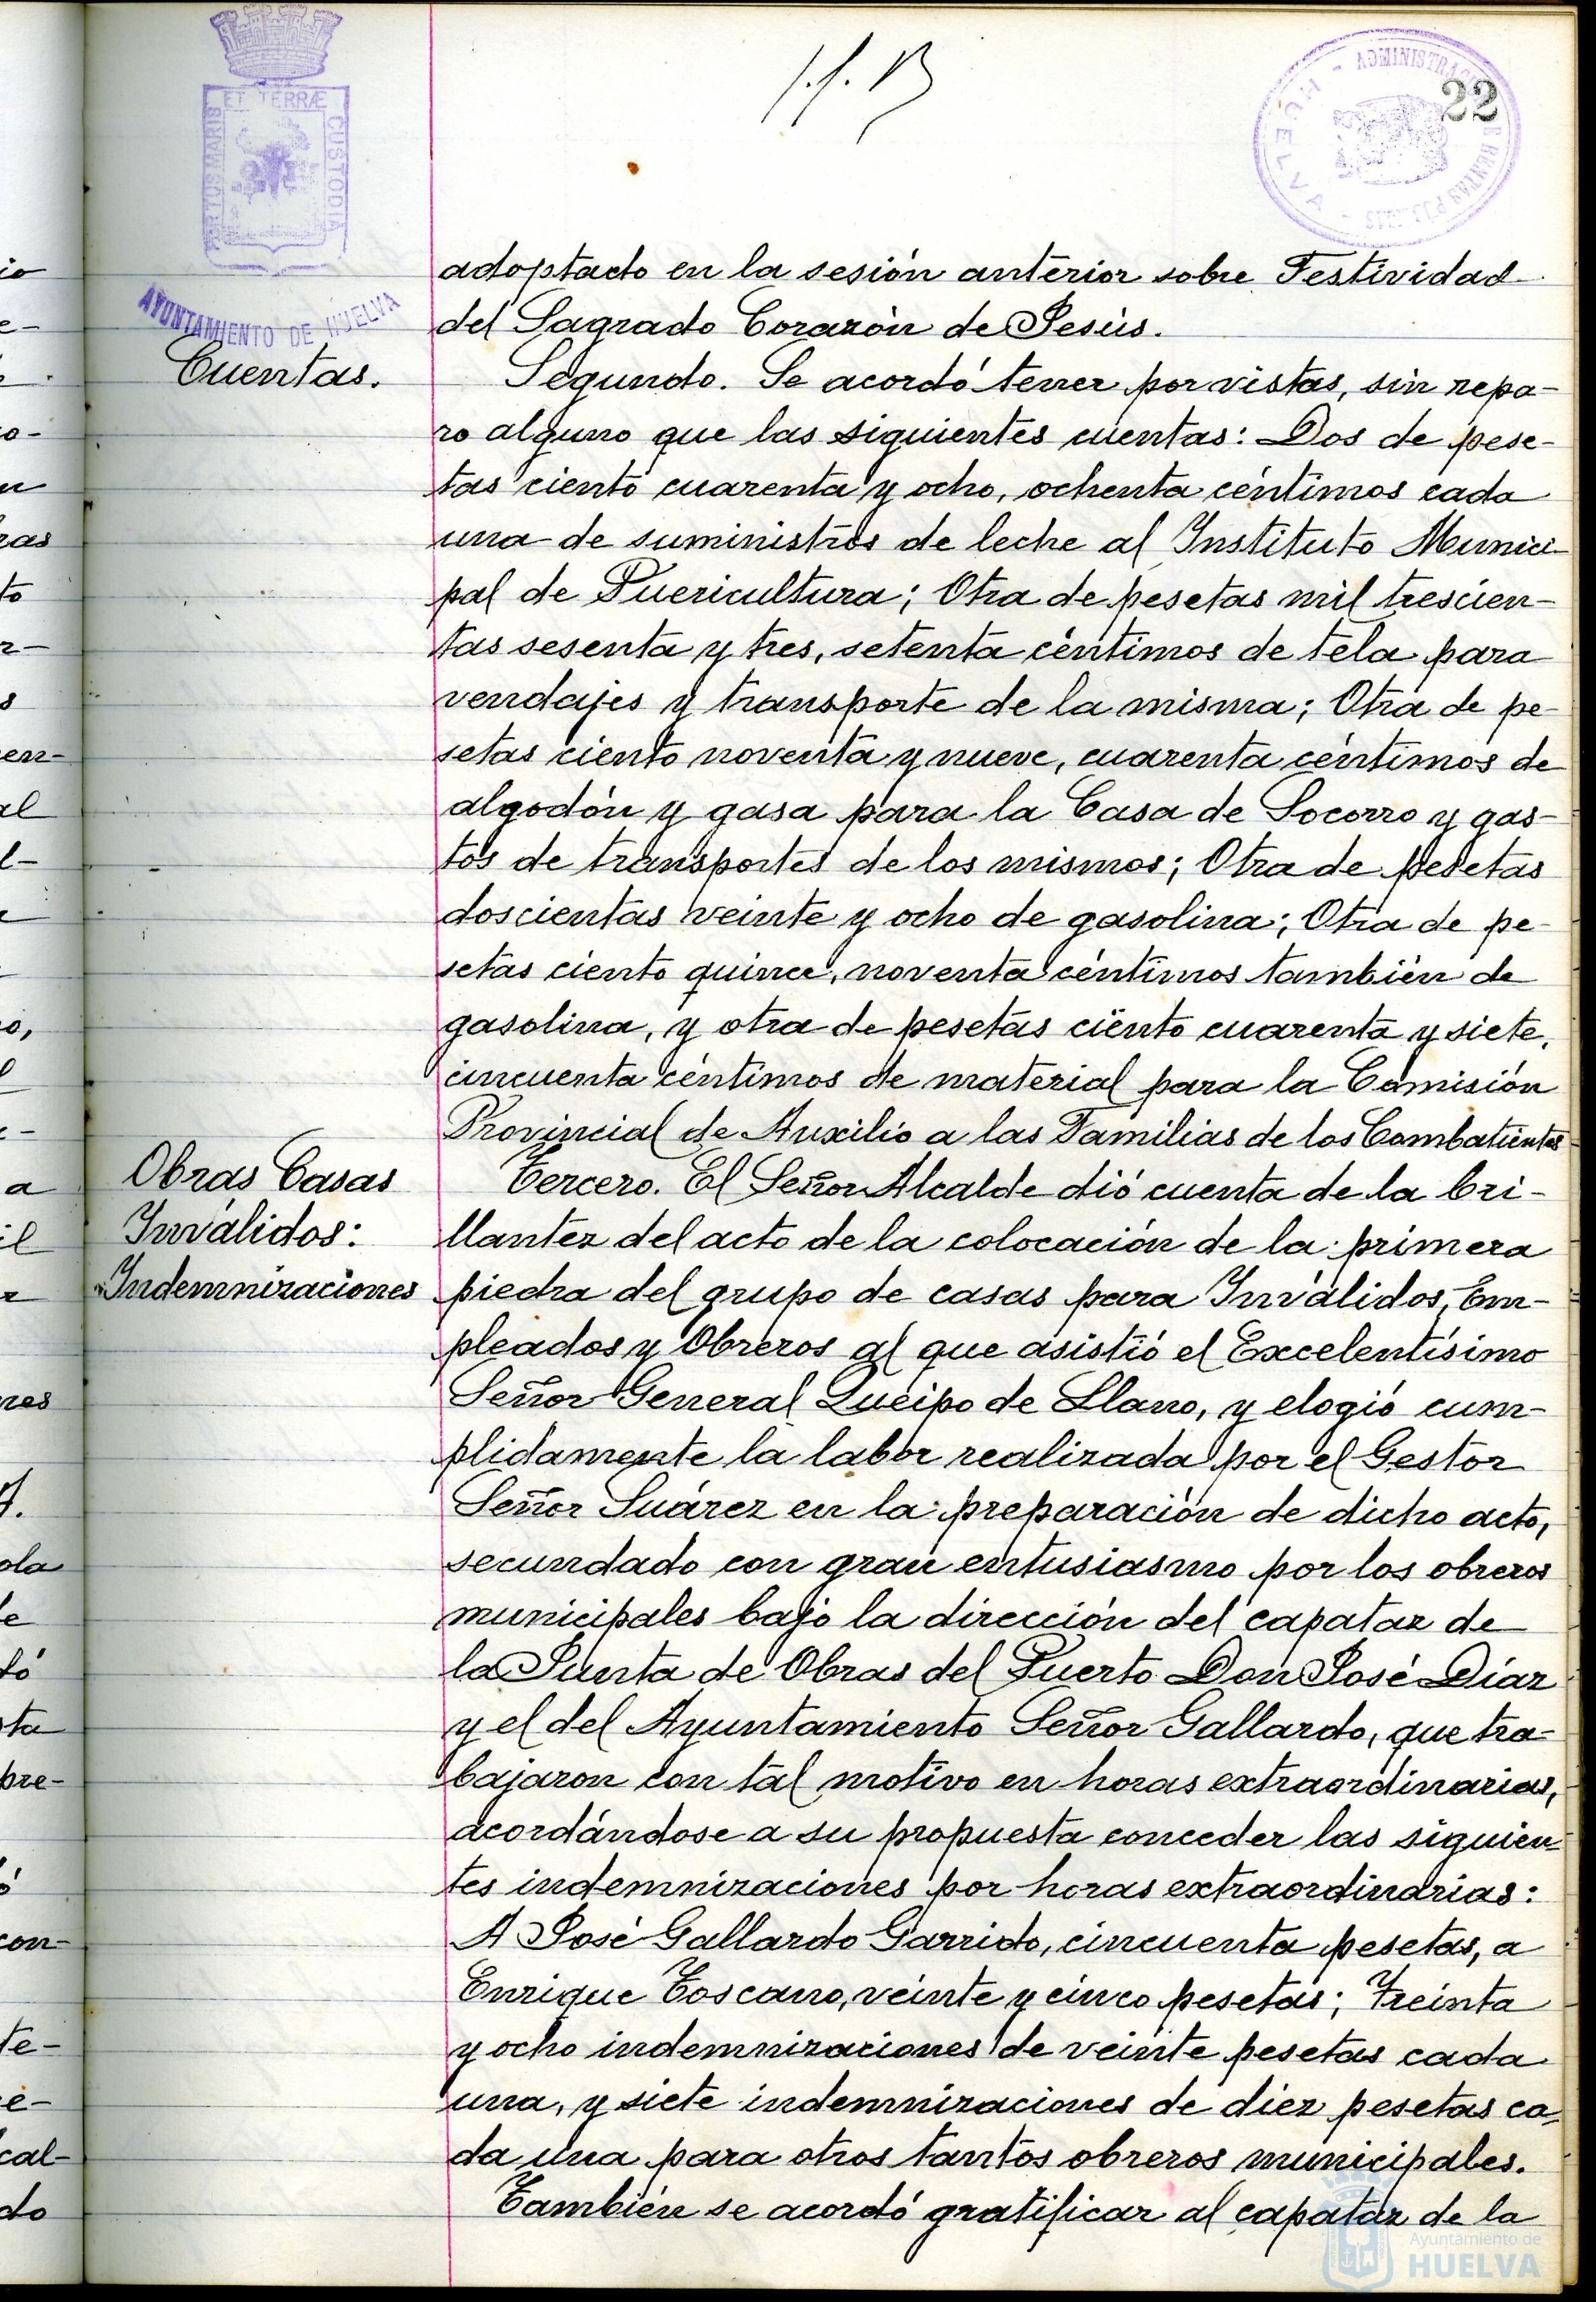 22
ET TERRÆ
PORTUS MARIS
CUSTODIA
AYUNTAMIENTO DE HUELVA
HUELVA
adoptado en la sesión anterior sobre Festividad
del Sagrado Corazón de Jesús.
Cuentas.
Segundo. Se acordó tener por vistas, sin repa-
ro alguno que las siguientes cuentas: Dos de pese-
tas ciento cuarenta y ocho, ochenta céntimos cada
una de suministros de leche al Instituto Munici-
pal de Puericultura; Otra de pesetas mil trescien-
tas sesenta y tres, setenta céntimos de tela para
vendajes y transporte de la misma; Otra de pe-
setas ciento noventa y nueve, cuarenta céntimos de
algodón y gasa para la Casa de Socorro y gas-
tos de transportes de los mismos; Otra de pesetas
doscientas veinte y ocho de gasolina; Otra de pe-
setas ciento quince, noventa céntimos también de
gasolina, y otra de pesetas ciento cuarenta y siete,
cincuenta céntimos de material para la Comisión
Provincial de Auxilio a las Familias de los Combatientes
Obras Casas
Inválidos:
Indemnizaciones
Tercero. El Señor Alcalde dió cuenta de la bri-
llantez del acto de la colocación de la primera
piedra del grupo de casas para Inválidos, Em-
pleados y Obreros al que asistió el Excelentísimo
Señor General Queipo de Llano, y elogió cum-
plidamente la labor realizada por el Gestor
Señor Suárez en la preparación de dicho acto,
secundado con gran entusiasmo por los obreros
municipales bajo la dirección del capataz de
la Junta de Obras del Puerto Don José Díaz
y el del Ayuntamiento Señor Gallardo, que tra-
bajaron con tal motivo en horas extraordinarias,
acordándose a su propuesta conceder las siguien-
tes indemnizaciones por horas extraordinarias:
A José Gallardo Garrido, cincuenta pesetas, a
Enrique Toscano, veinte y cinco pesetas; Treinta
y ocho indemnizaciones de veinte pesetas cada
una, y siete indemnizaciones de diez pesetas ca-
da una para otros tantos obreros municipales.
También se acordó gratificar al capataz de la
Ayuntamiento de
HUELVA